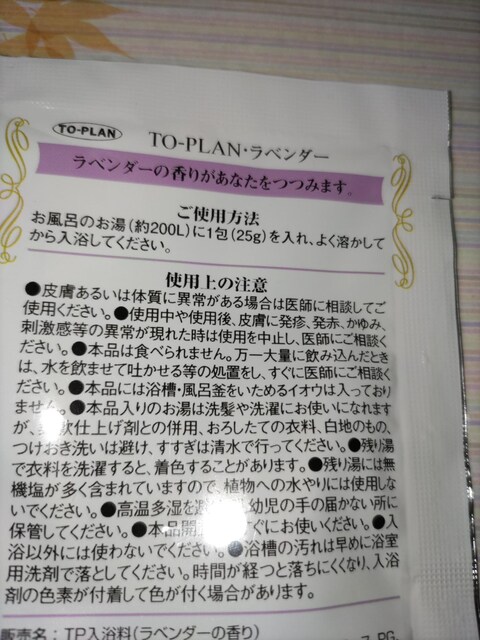 TO-PLAN
TO-PLAN・ラベンダー
ラベンダーの香りがあなたをつつみます。
ご使用方法
お風呂のお湯(約200L)に1包(25g)を入れ、よく溶かして
から入浴してください。
使用上の注意
●皮膚あるいは体質に異常がある場合は医師に相談してご
使用ください。●使用中や使用後、皮膚に発疹、発赤、かゆみ、
刺激感等の異常が現れた時は使用を中止し、医師にご相談く
ださい。●本品は食べられません。万一大量に飲み込んだとき
は、水を飲ませて吐かせる等の処置をし、すぐに医師にご相談く
ださい。●本品には浴槽・風呂釜をいためるイオウは入っており
ません。●本品入りのお湯は洗髪や洗濯にお使いになれます
が、軟仕上げ剤との併用、おろしたての衣料、白地のもの、
つけおき洗いは避け、すすぎは清水で行ってください。●残り湯
で衣料を洗濯すると、着色することがあります。●残り湯には無
機塩が多く含まれていますので、植物への水やりには使用しな
いでください。●高温多湿を 幼児の手の届かない所に
保管してください。●本品開 ぐにお使いください。●入
浴以外には使わないでください。●浴槽の汚れは早めに浴室
用洗剤で落としてください。時間が経つと落ちにくくなり、入浴
剤の色素が付着して色が付く場合があります。
販売名：TP入浴料(ラベンダーの香り)